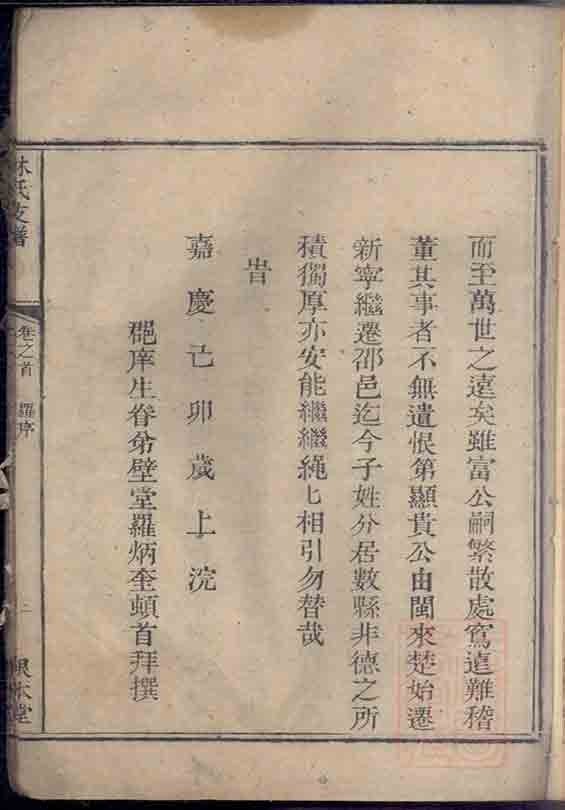 而至萬世之遠矣雖富公嗣繁散處窵遠難稽
董其事者不無遺恨第顯貴公由閩來楚始遷
新寧繼遷邵邑迄今子姓分居數縣非德之所
積獨厚亦安能繼繼繩匕相引勿替哉
旹
嘉慶己卯歲上浣
邑庠生眷弟壁堂羅炳奎頓首拜撰
林氏支譜
卷之首 羅序
二